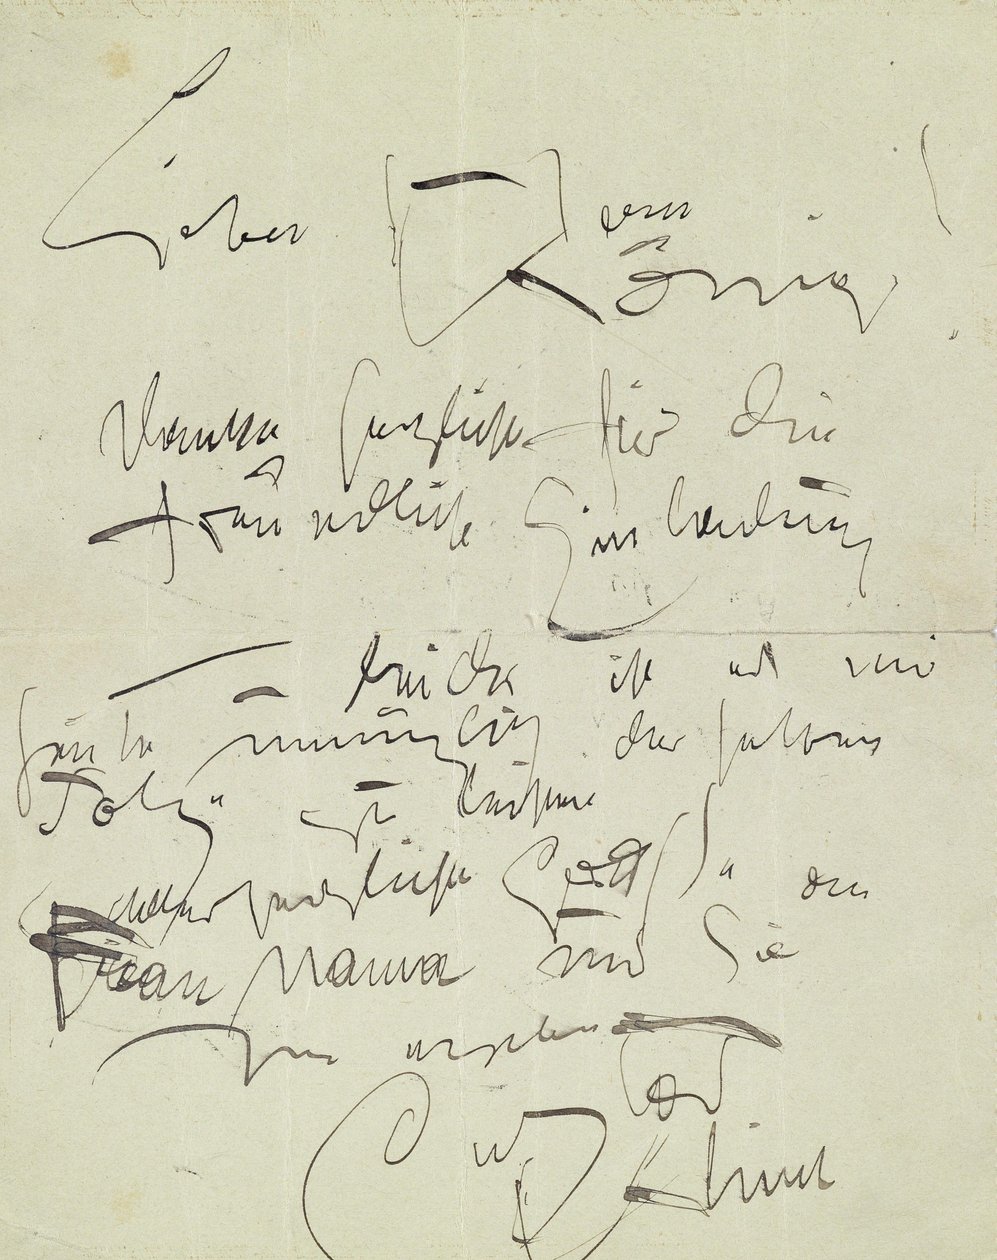 Lieber Herr
König!
Danke herzlichst für die
freundliche Einladung
leider ist es mir
heute unmöglich derselben
Folge zu leisten
herzliche Grüße an
Frau Mama und Sie
Ihr ergebenst
Gustav
Klimt